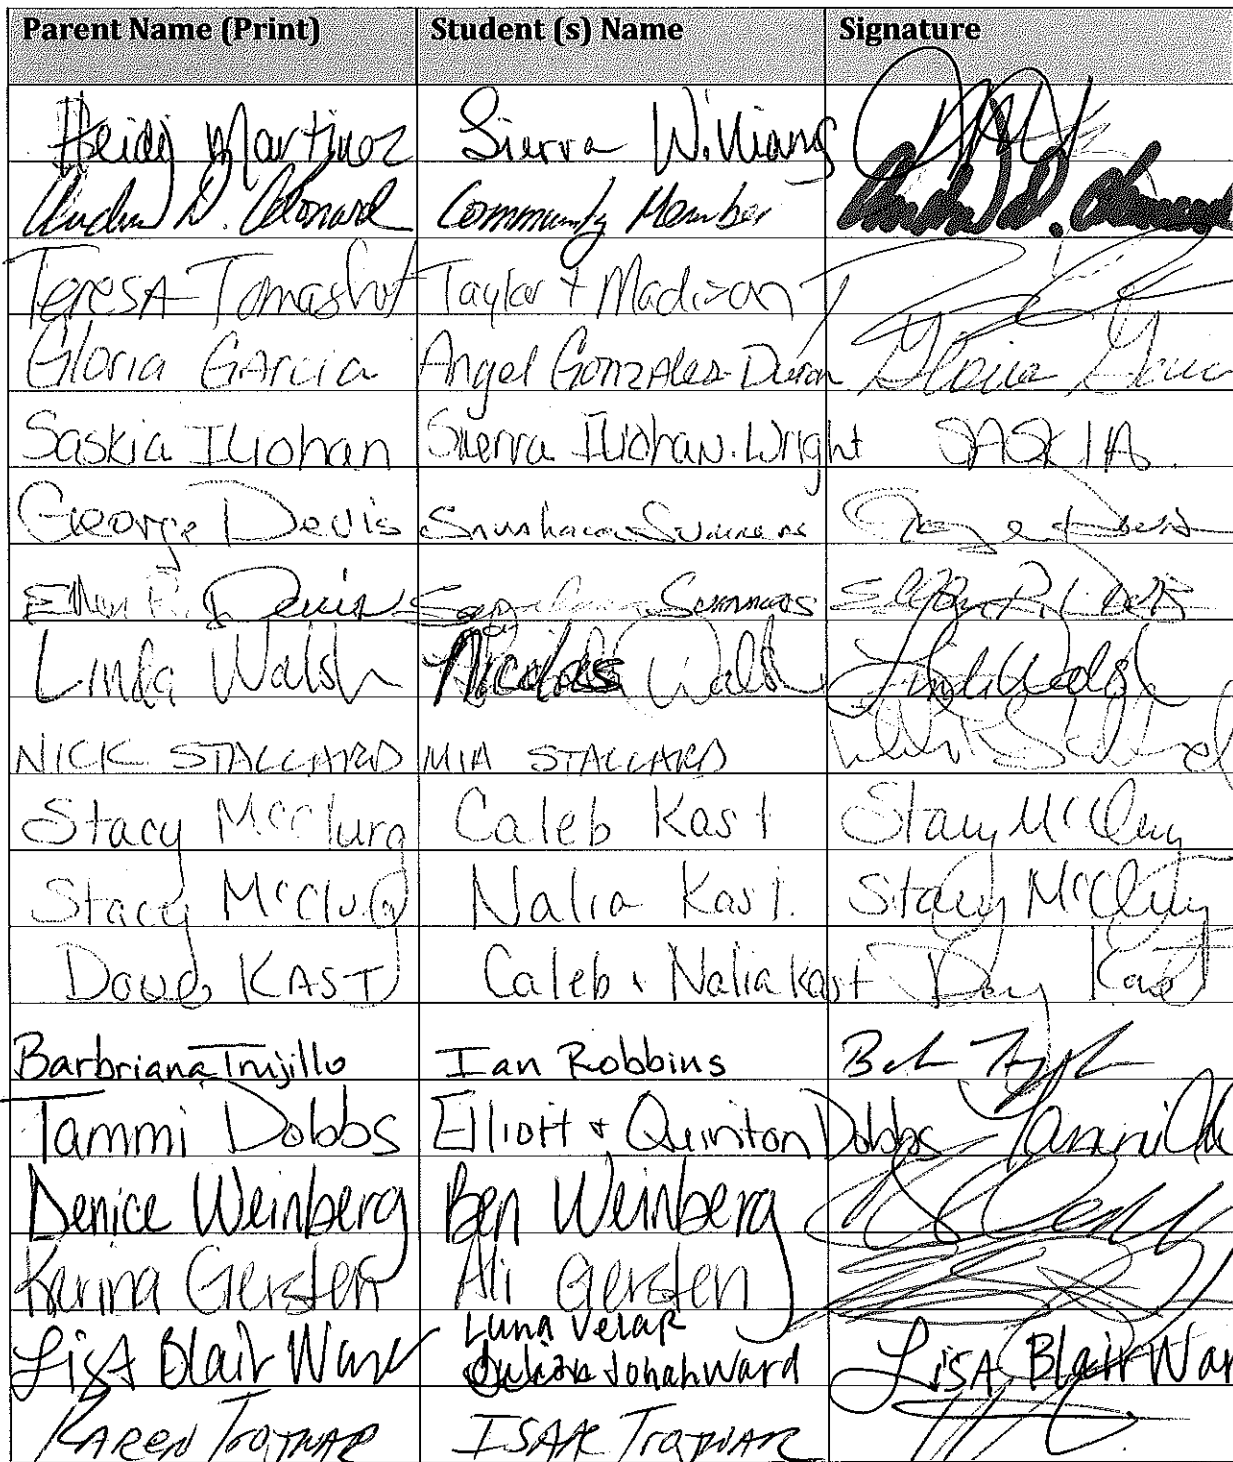 Parent Name (Print) Student (s) Name Signature
Heidi Martinez Sierra Williams
D. Community Member D.
Teresa Taylor + Madison
Gloria Garcia Angel Gonzales-Duran Gloria Garcia
Saskia Iliohan Sierra Iliohan-Wright SASKIA
George Davis George Davis
Ellen R. Davis Summers Ellen R. Davis
Linda Walsh Nicholas Walsh Linda Walsh
NICK STALLARD MIA STALLARD
Stacy McClurg Caleb Kast Stacy McClurg
Stacy McClurg Nalia Kast. Stacy McClurg
Doug KAST Caleb + Nalia Kast Doug Kast
Barbriana Trujillo Ian Robbins
Tammi Dobbs Elliott + Quinton Dobbs Tammi
Denice Weinberg Ben Weinberg
Karina Gersten Ali Gersten
Luna
LisA Blair Ward Jonah Ward LisA Blair War
KAREN ISAK